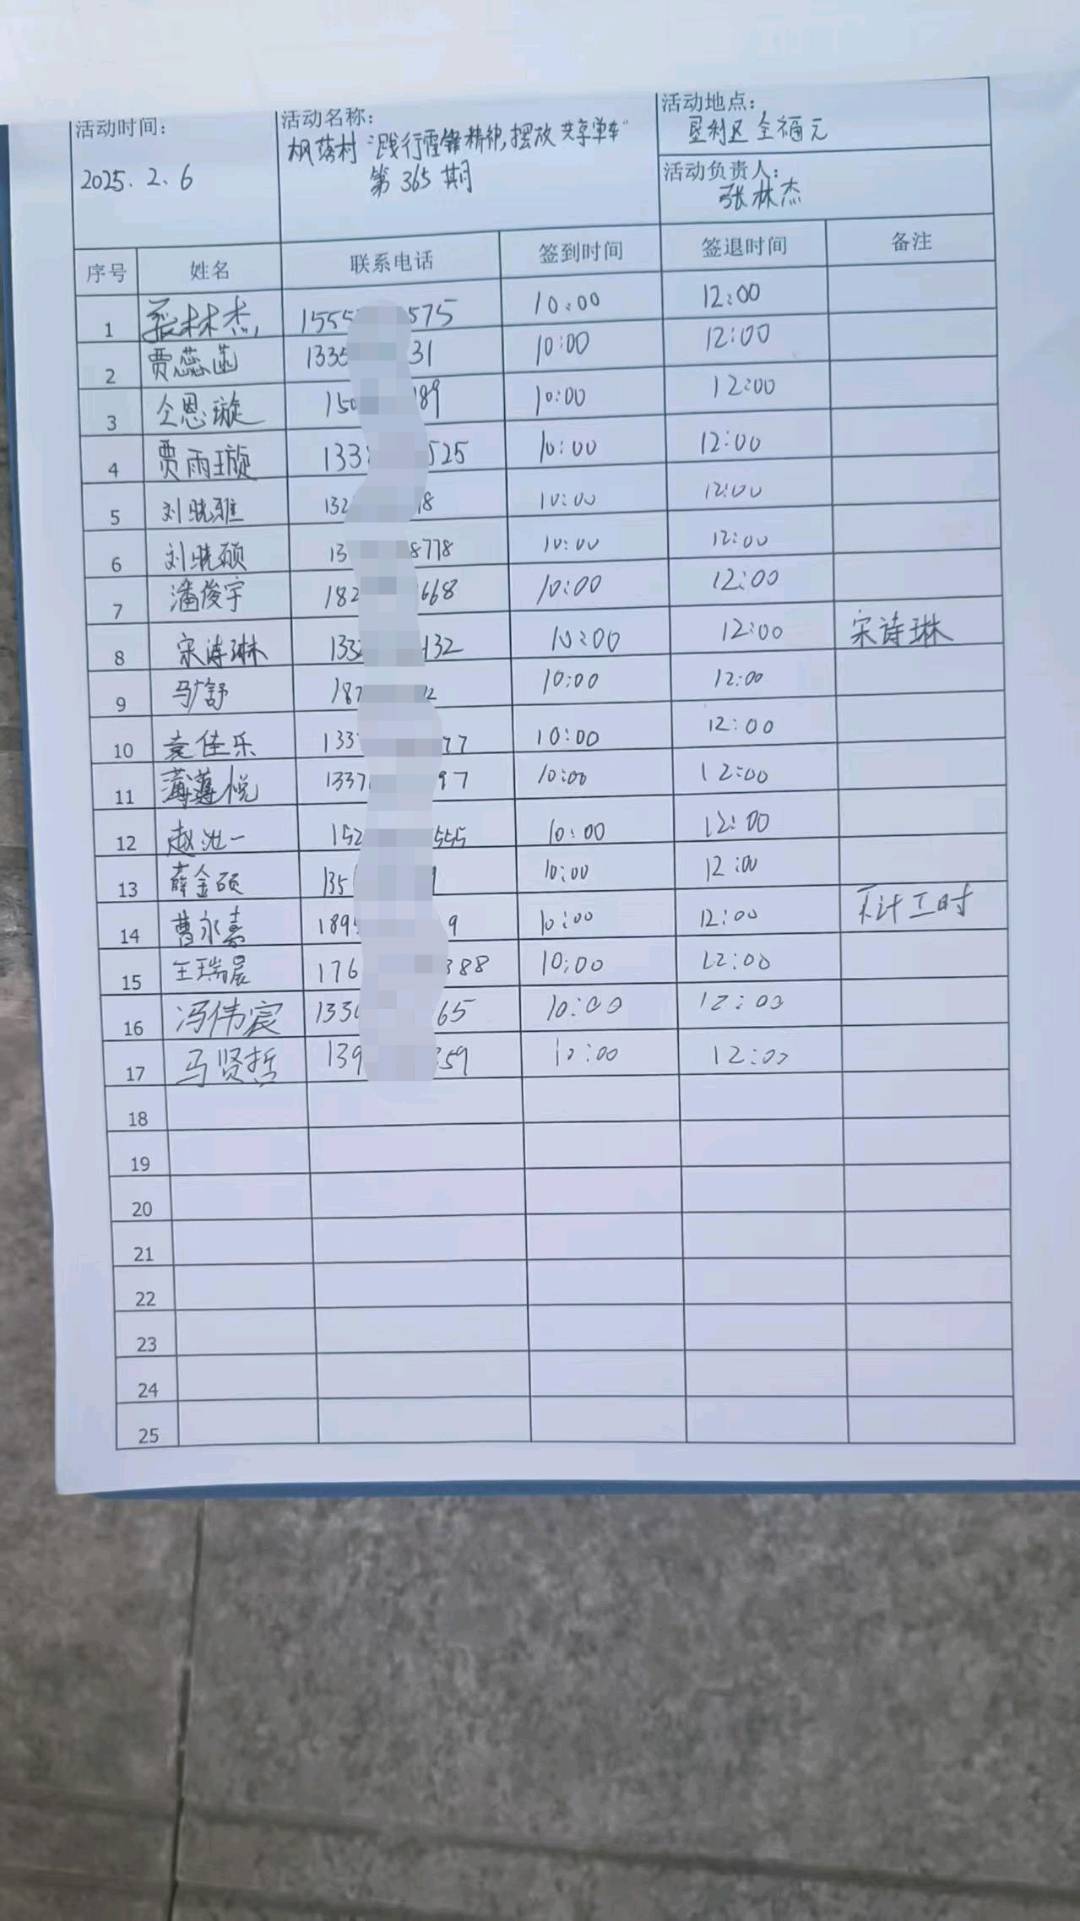 活动时间：
2025.2.6
活动名称：
枫落村"践行雷锋精神，摆放共享单车"
第365期
活动地点：
垦利区全福元
活动负责人：
张林杰
序号 姓名 联系电话 签到时间 签退时间 备注
1 张林杰 1555 575 10:00 12:00
2 贾蕊菡 1335 31 10:00 12:00
3 仝恩璇 150 189 10:00 12:00
4 贾雨璇 133 525 10:00 12:00
5 刘晓雅 132 18 10:00 12:00
6 刘晓硕 13 8778 10:00 12:00
7 潘俊宇 182 668 10:00 12:00
8 宋诗琳 133 132 10:00 12:00 宋诗琳
9 马舒 187 2 10:00 12:00
10 袁佳乐 133 77 10:00 12:00
11 悦 1337 97 10:00 12:00
12 赵 一 152 555 10:00 12:00
13 薛金硕 135 9 10:00 12:00
14 曹永嘉 189 9 10:00 12:00 不计工时
15 王瑞晨 176 388 10:00 12:00
16 冯伟宸 133 65 10:00 12:00
17 马贤哲 139 359 12:00 12:00
18
19
20
21
22
23
24
25